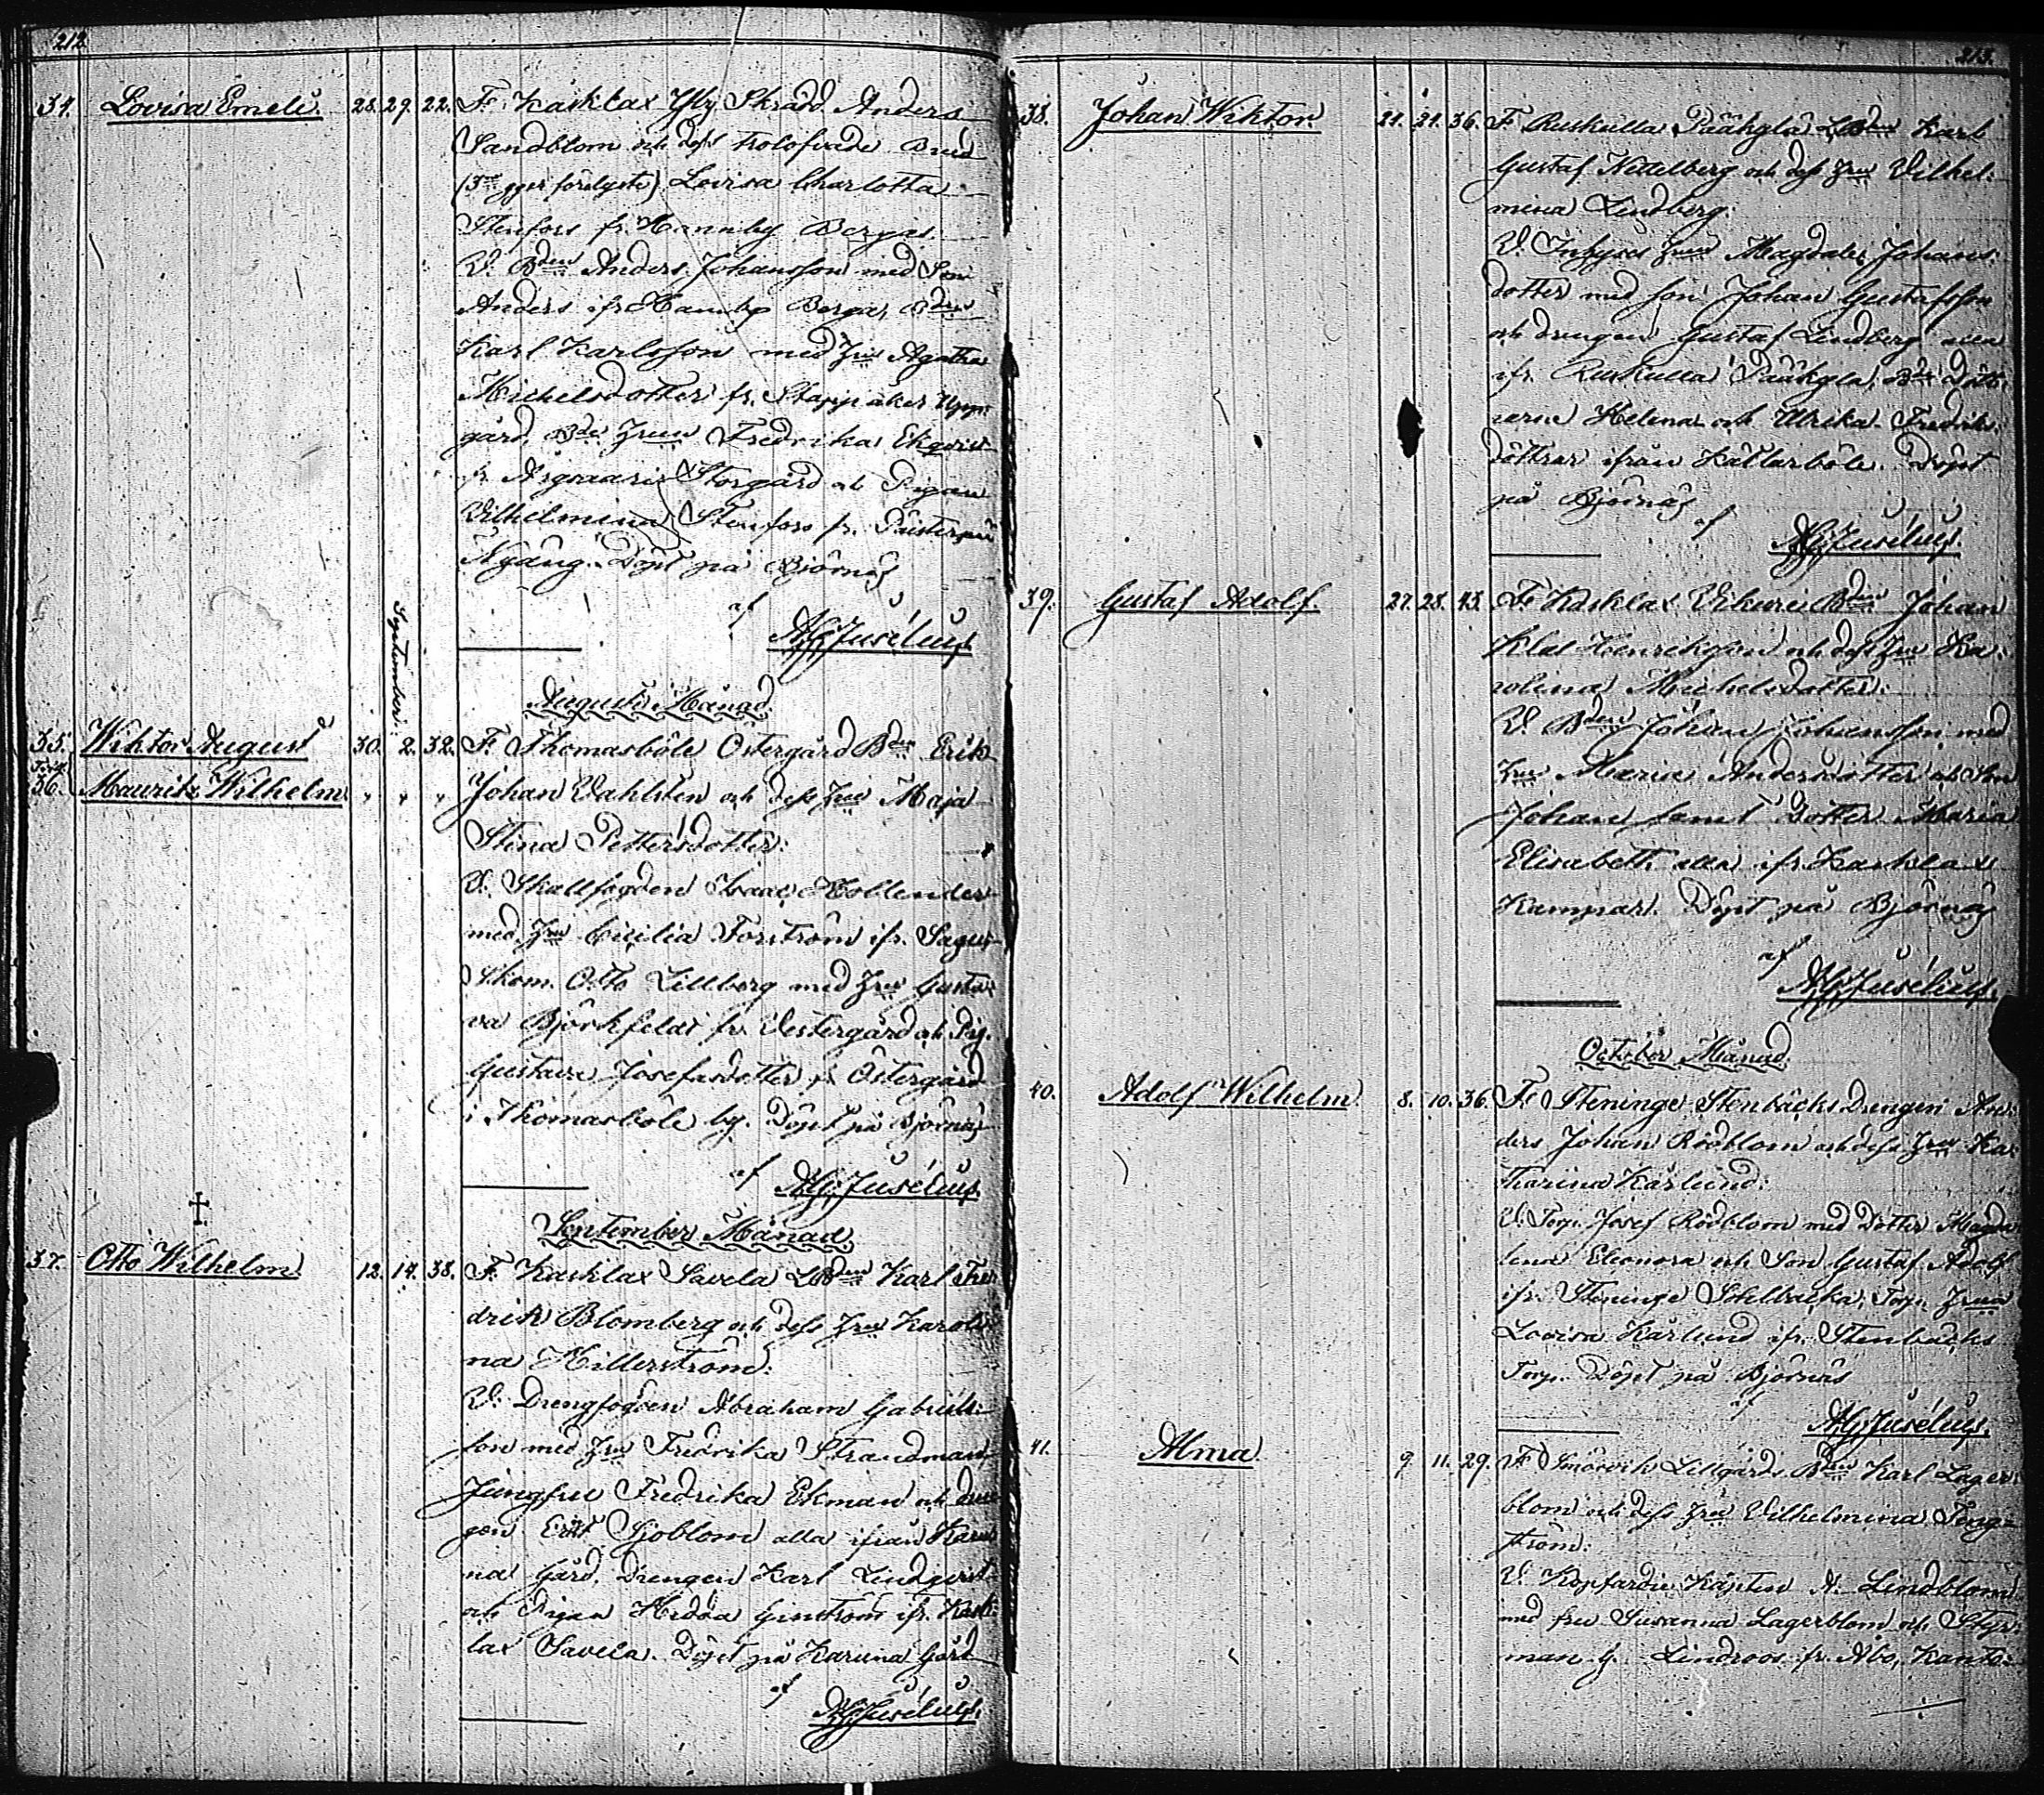 212
34. Lovisa Emeli. 28. 29. 22. F. Kasklax Yly Skrädd. Anders
Sandblom och dess trolofvade Brud
(3ne ggr förelyste) Lovisa Charlotta
Stenfors fr. Hannby Bergas.
V. Bden Anders Johansson med Son
Anders ifr. Hannby Bergas, Bden
Karl Karlsson med Hru Agatha
Michelsdotter fr. Stappåker Upp:
gård, Bde Hrun Fredrika Ekqvist
fr. Storgård och Pigan
Vilhelmina Stenfors fr.
Nygång. Döpt på Björnäs
af
AGJusélius.
Augusti Månad.
September.
35. Wiktor August 30. 2. 32. F. Thomasböle Östergård Bden Erik
36. Mauritz Wilhelm " " " Johan Vahlstén och dess Hru Maja
Stina Pettersdotter.
V. Skallfogden Isaac Hollender
med Hru Cicilia Forström ifr. Sagu,
Skom. Otto Lillberg med Hru Gusta:
va Björkfelt fr. Vestergård och Pig.
Gustava Josefsdotter fr. Östergård
i Thomasböle by. Döpt på Björnäs
af
AGJusélius.
†
September Månad.
37. Otto Wilhelm 12. 14. 38. F. Kasklax Savela LBden Karl Fre
drik Blomberg och dess Hru Karoli
na Hillerström.
V. Drengfogden Abraham Gabriels:
son med Hru Fredrika Strandman
Jungfru Fredrika Ekman och dren
gen Erik Sjöblom alla ifrån Karu
na Gård. Drengen Karl Lindqvist
och Pigan Hedda Ginström ifr. Kask:
lax Savela. Döpt på Karuna Gård
af
AGJusélius.
213.
38. Johan Wiktor. 21. 21. 36. F. Ruskulla Pääkylä LBden Karl
Gustaf Kettelberg och dess Hru Vilhel:
mina Lindberg.
V. Inhyses Hrun Magdalen Johans:
dotter med son Johan Gustafsson
och drengen Gustaf Lindberg alla
ifr. Ruskulla Pääkylä, Bde Dött:
rarne Helena och Ulrika Fredriks:
döttrar ifrån Källarböle. Döpt
på Björnäs
af
AGJusélius.
39. Gustaf Adolf. 27. 28. 43. F. Kasklax Vikurei Bden Johan
Klas Henriksson och dess Hru Ka:
rolina Michelsdotter.
V. Bden Johan Johansson med
Hru Maria Andersdotter och Son
Johan samt Dotter Maria
Elisabeth alla ifr. Kasklax
Kamppar. Döpt på Björnäs
af
AGJusélius.
October Månad.
40. Adolf Wilhelm 8. 10. 36. F. Steninge Stenbäcks Drengen An:
ders Johan Rödblom och dess Hru Ka:
tharina Kårlund.
V. Torp. Josef Rödblom med Dotter Magda
lena Eleonora och Son Gustaf Adolf
ifr. Steninge Torp. Hrun
Lovisa Kårlund ifr. Stenbäcks
Torp. Döpt på Björnäs
af
AGJusélius.
41. Alma 9. 11. 29. F. Smörvik Lillgårds Bden Karl Lager:
blom och dess Hru Vilhelmina Teng:
ström.
V. Kopfardie Kapten A. Lindblom
med fru Susanna Lagerblom och Styr:
man G. Lindroos fr. Åbo, Kanto: